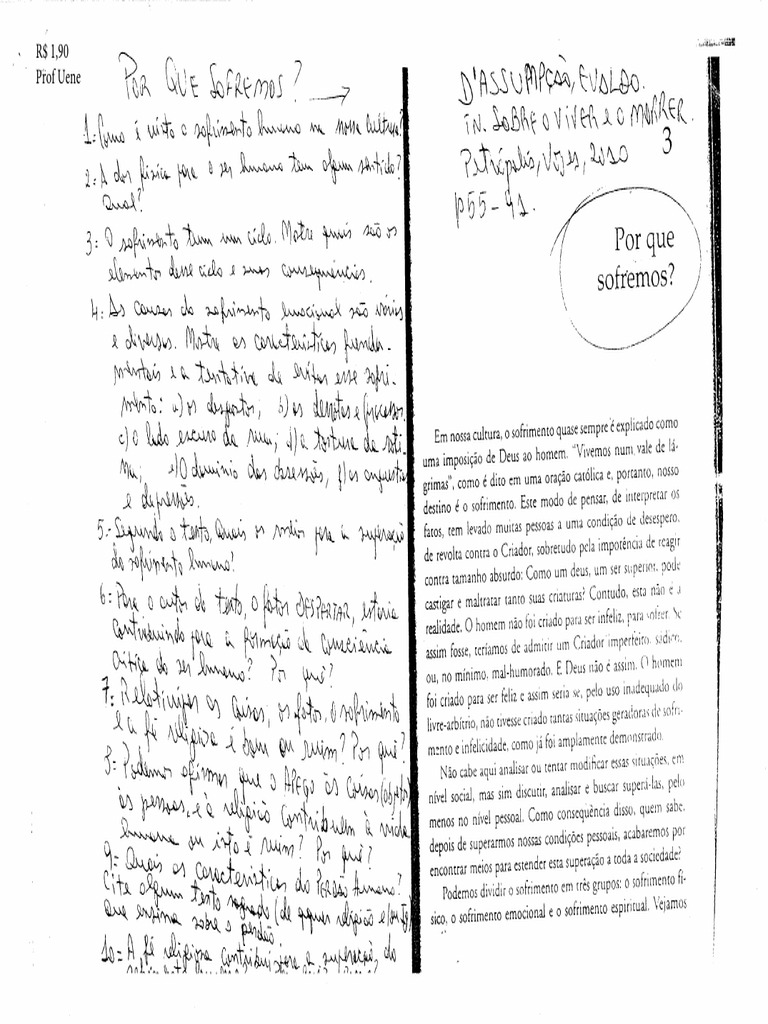 R$ 1,90
Prof Uene
POR QUE SOFREMOS? →
1= Como é visto o sofrimento humano na nossa cultura?
2= A dor física para o ser humano tem algum sentido?
Qual?
3= O sofrimento tem um ciclo. Mostre quais são os
elementos desse ciclo e suas consequências.
4= As causas do sofrimento emocional são várias
e diversas. Mostre as características
e a tentativa de evitar esse sofri-
mento: a) os desgostos; b) as derrotas e fracassos
c) o lado escuro da ; d) a tortura da roti-
na; e) O domínio das obsessões, f) as angústias
e depressões.
5= Segundo o texto, Quais os meios para a superação
do sofrimento humano?
6= Para o autor do texto, o fator DESPERTAR, estaria
contribuindo para a formação da consciência
crítica do ser humano? Por quê?
7= Relativizar as coisas, os fatos, o sofrimento
e a fé religiosa é bom ou ruim? Por quê?
8= Podemos afirmar que o APEGO às coisas (objetos)
às pessoas, e à religião contribuem à vida
humana ou isto é ruim? Por quê?
9= Quais as características do PERDÃO Humano?
Cite algum texto sagrado (de religião
que ensina sobre o perdão.
10= A fé religiosa contribui para a superação do
D'ASSUMPÇÃO, EVALDO.
in. SOBRE O VIVER e O MORRER.
Petrópolis, Vozes, 2010
p55-91.
3
Por que
sofremos?
Em nossa cultura, o sofrimento quase sempre é explicado como
uma imposição de Deus ao homem. "Vivemos num vale de lá-
grimas", como é dito em uma oração católica e, portanto, nosso
destino é o sofrimento. Este modo de pensar, de interpretar os
fatos, tem levado muitas pessoas a uma condição de desespero,
de revolta contra o Criador, sobretudo pela impotência de reagir
contra tamanho absurdo: Como um deus, um ser superior, pode
castigar e maltratar tanto suas criaturas? Contudo, esta não é a
realidade. O homem não foi criado para ser infeliz, para sofrer. Se
assim fosse, teríamos de admitir um Criador imperfeito, sádico,
ou, no mínimo, mal-humorado. E Deus não é assim. O homem
foi criado para ser feliz e assim seria se, pelo uso inadequado do
livre-arbítrio, não tivesse criado tantas situações geradoras de sofri-
mento e infelicidade, como já foi amplamente demonstrado.
Não cabe aqui analisar ou tentar modificar essas situações, em
nível social, mas sim discutir, analisar e buscar superá-las, pelo
menos no nível pessoal. Como consequência disso, quem sabe,
depois de superarmos nossas condições pessoais, acabaremos por
encontrar meios para estender esta superação a toda a sociedade?
Podemos dividir o sofrimento em três grupos: o sofrimento fí-
sico, o sofrimento emocional e o sofrimento espiritual. Vejamos